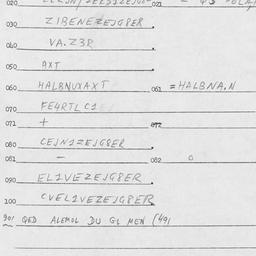 030 ZIBENEZEJG8ER
040 VA.Z3R
050 AXT
060 HALBNUXAXT 061 =HALBNA,N
070 FE4RTLC1
071 + 072
080 CEJN1ZEJG8ER
081 - 082 0
090 EL1VEZEJG8ER
100 CVEL1VEZEJG8ER
901 QED ALEMOL DU GL MEN (49)